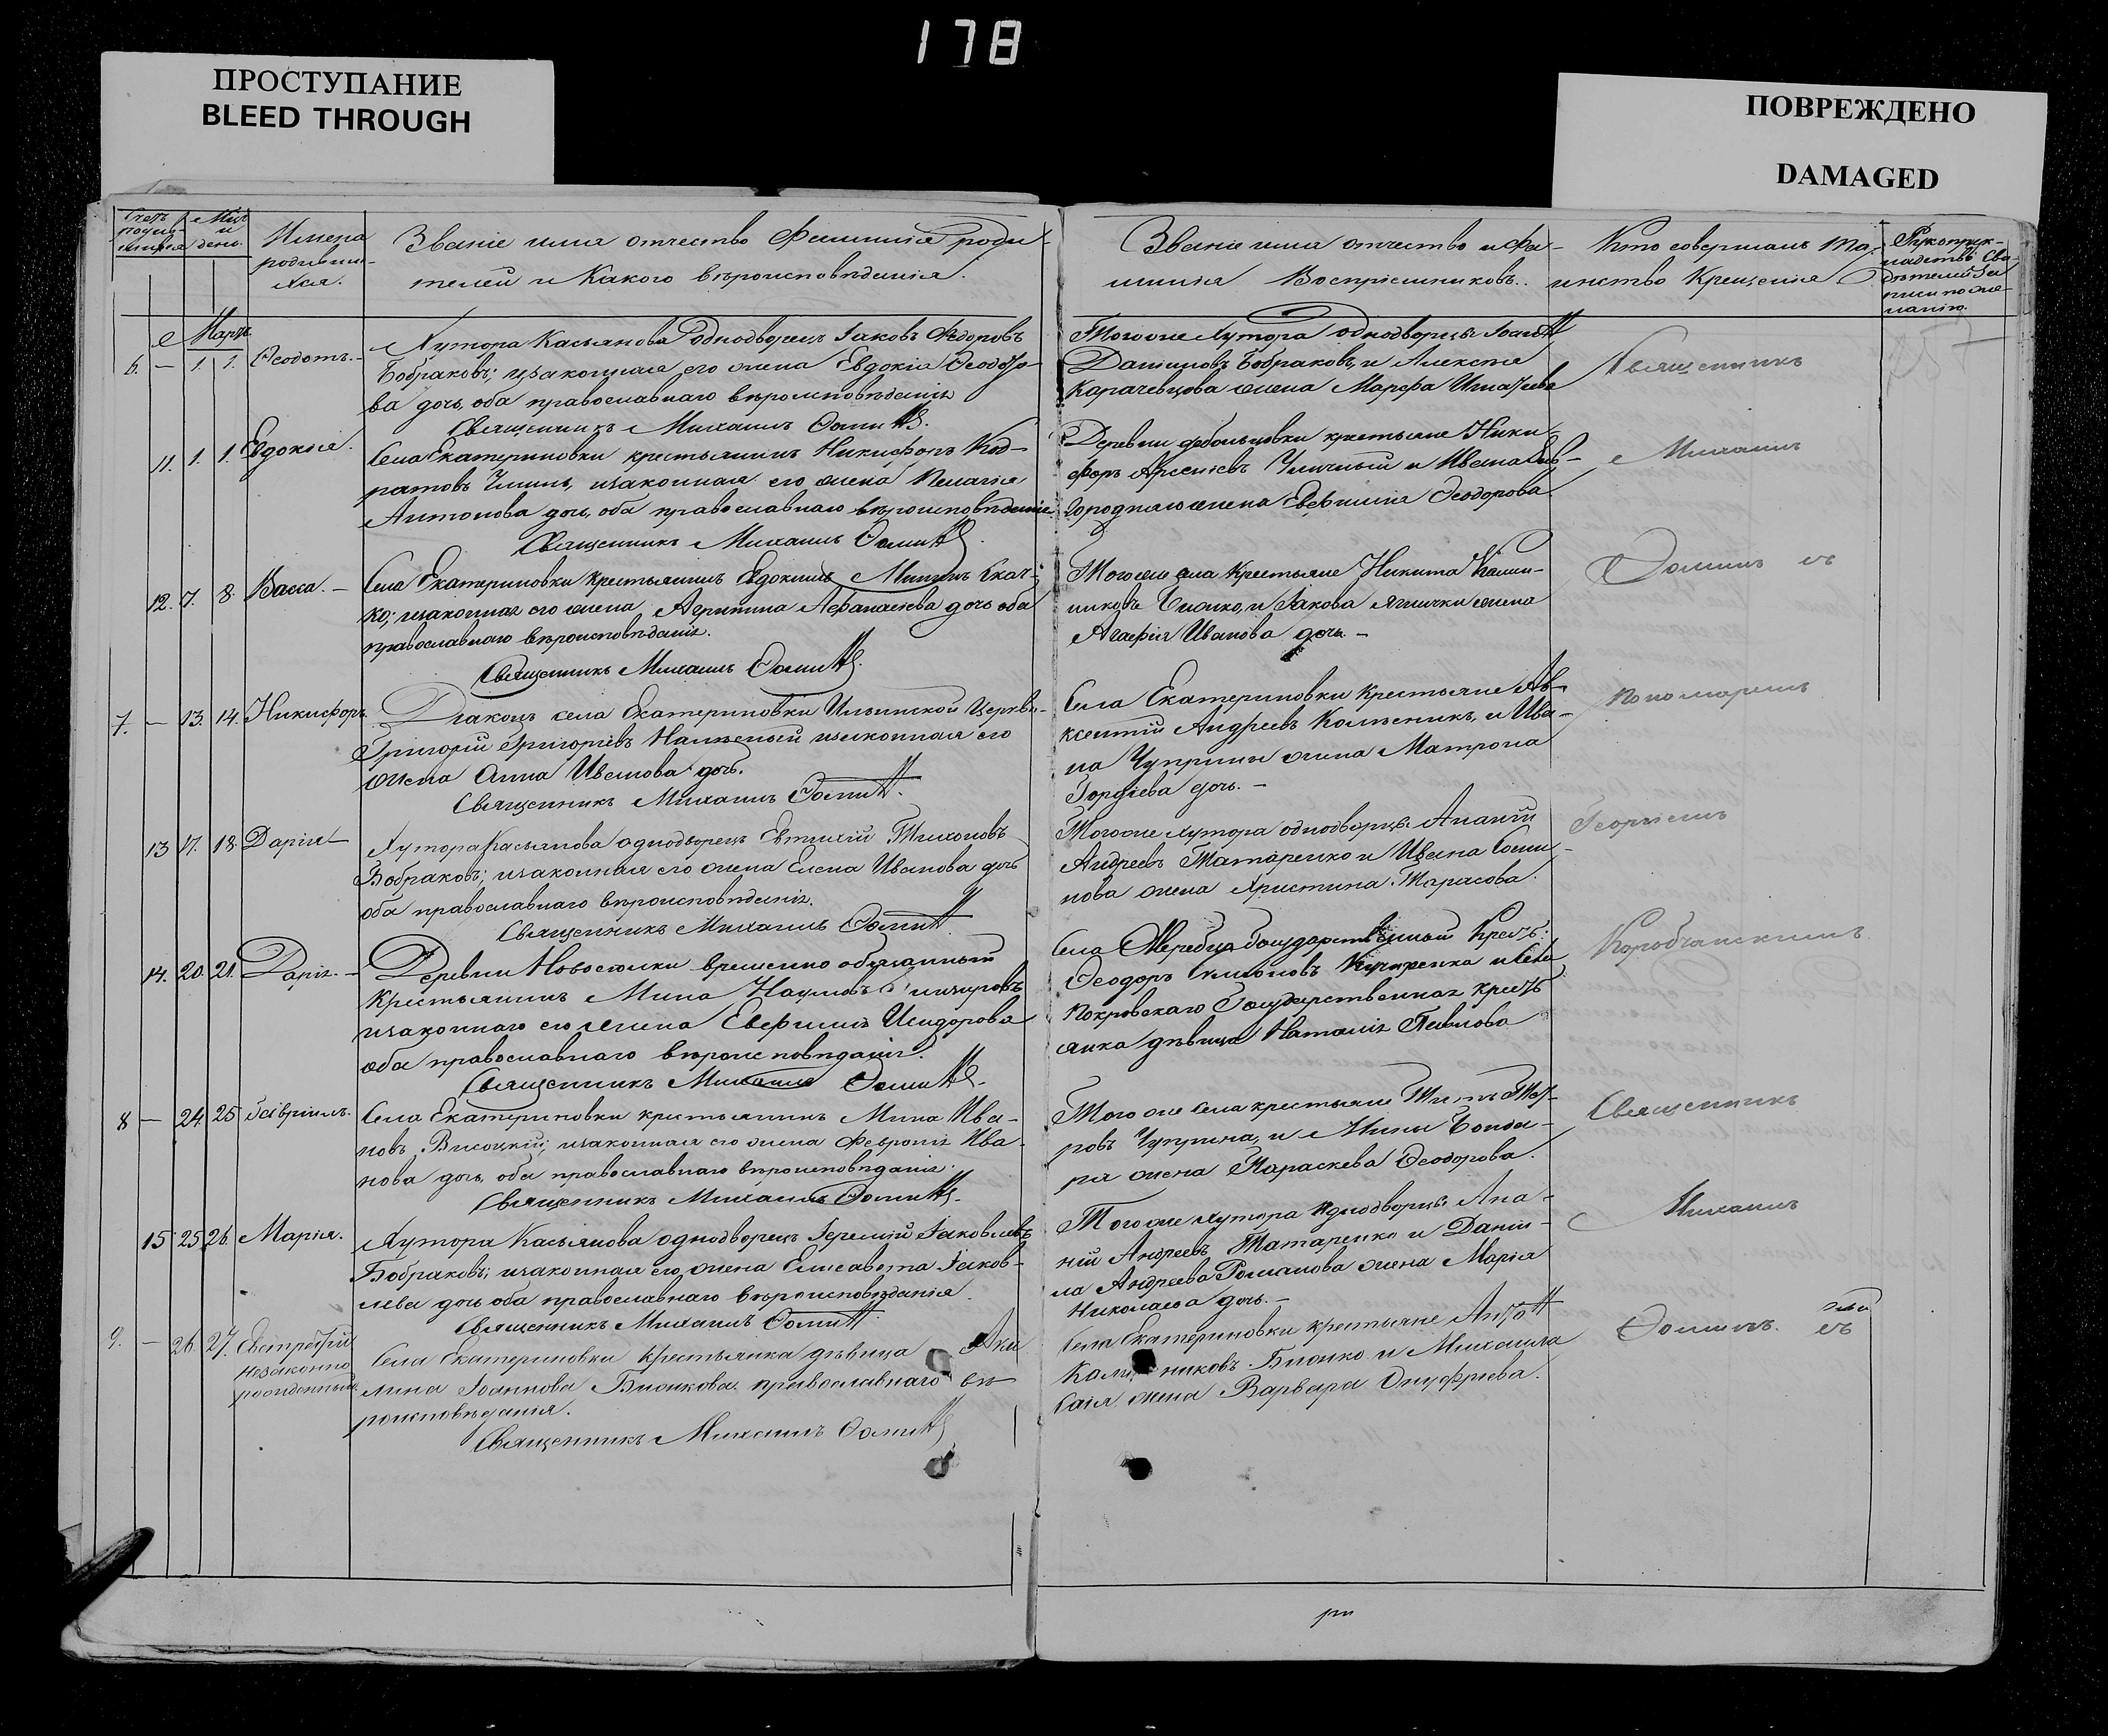 178
ПРОСТУПАНИЕ
BLEED THROUGH
ПОВРЕЖДЕНО
DAMAGED
Счетъ родив-шихся
Мѣс. и день.
Имена родивши-хся.
Званіе имя отчество Фамилія роди-
телей и Какого вѣроисповѣданія.
Званіе имя отчество и Фа-
милія Воспріемниковъ.
Кто совершалъ та-
инство Крещенія
Рукоприк-
ладство Сви-
дѣтелей За
писи по же-
ланію.
Мартъ
6. — 1. 1. Ѳеодотъ.
Хутора Касьянова Однодворецъ Іаковъ Федоровъ
Бобраковъ; изаконная его жена Евдокія Ѳеодото-
ва дочь, оба православнаго вѣроисповѣданія
Священникъ Михаилъ Ѳомин
Тогоже Хутора однодворцы Іоан
Даниловъ Бобраковъ, и Алексѣя
Карачевцова жена Марфа Игнатьева
Священникъ
11. 1. 1. Евдокія.
Села Екатериновки крестьянинъ Никифоръ Код-
ратовъ, изаконная его жена Пелагія
Антонова дочь, оба православнаго вѣроисповѣданія
Священникъ Михаилъ Ѳомин
Деревни крестьяне Ники-
форъ Арсеніевъ и Ивана
городняго жена Евфимія Ѳеодорова.
Михаилъ
12. 7. 8. Васса. —
Села Екатериновки крестьянинъ Евдокимъ Мининъ Скач-
ко; изаконная его жена Агрипина Афанасіева дочь оба
православнаго вѣроисповѣданія.
Священникъ Михаилъ Ѳомин
Тогоже села Крестьяне Никита Калин-
никовъ, и Іакова Ягнички жена
Агафія Иванова дочь. —
Ѳоминъ съ
7. — 13. 14. Никифоръ.
Діаконъ села Екатериновки Ильинской Церкви
Григорій Григоріевъ изаконная его
жена Анна Иванова дочь.
Священникъ Михаилъ Ѳомин
Села Екатериновки Крестьяне Ав-
ксентій Андреевъ Колѣсникъ, и Ива-
на Чуприны жена Матрона
Гордѣева дочь. —
пономаремъ
13 17. 18. Дарія
Хутора Касьянова однодворецъ Евтихій Тихоновъ
Бобраковъ; изаконная его жена Елена Иванова дочь
оба православнаго вѣроисповѣданія.
Священникъ Михаилъ Ѳомин
Тогоже хутора однодворцы Ананій
Андреевъ Татаренко и Ивана Семи-
нова жена Христина Тарасова.
Георгіемъ
14. 20. 21. Дарія. —
Деревни Новоселки временно обязанный
крестьянинъ Мина Наумовъ
изаконнаго его жена Евфимія Исидорова
оба православнаго вѣроисповѣданія.
Священникъ Михаилъ Ѳомин
Села Жеребца Государственный Крест:
Ѳеодоръ Симоновъ Кучеренка и Села
Покровскаго Государственная крестъ
янка дѣвица Наталія Павлова
Коробчанскимъ
8 — 24. 25 Гавріилъ.
Села Екатериновки крестьянинъ Мина Ива-
новъ Високій; изаконная его жена Февронія Ива-
нова дочь, оба православнаго вѣроисповѣданія.
Священникъ Михаилъ Ѳомин
Того же Села крестьяне Титъ
ровъ Чуприна, и Мины Бонда-
ря жена Параскева Ѳеодорова.
Священникъ
15 25 26. Марія.
Хутора Касьянова однодворецъ Іеремій Іаковлевъ
Бобраковъ; изаконная его жена Елисавета Іаков-
лева дочь оба православнаго вѣроисповѣданія.
Священникъ Михаилъ Ѳомин
Того же хутора однодворцы Ана-
ній Андреевъ Татаренко и Дані-
ла Андреева Романова жена Марія
Николаева дочь. —
Михаилъ
9. — 26. 27. Евстратій
незаконно
рожденный.
Села Екатериновки крестьянка дѣвица Аки
лина Іоаннова Бножкова православнаго вѣ-
роисповѣданія.
Священникъ Михаилъ Ѳомин
Села Екатериновки крестьяне Анто
никовъ и Михаила
жена Варвара Онуфріева.
Ѳоминъ. съ